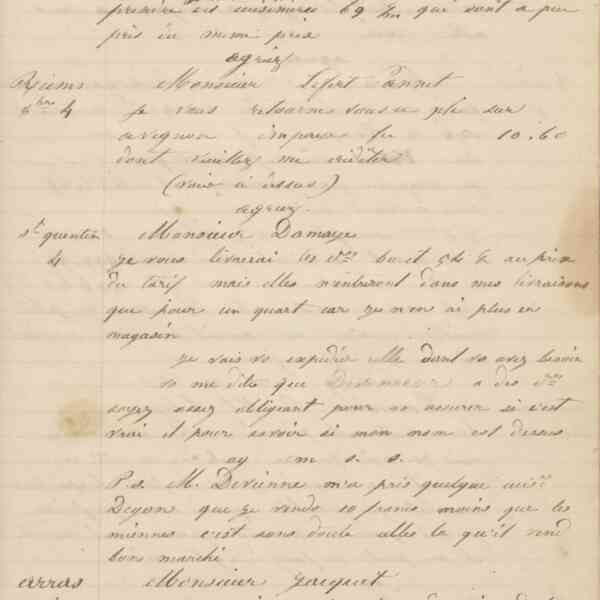 prendre des cuisinières 69 qui sont a peu
près du meme prix
agréez
Reims Monsieur Lefert Pannet
4 je vous retourne sous ce pli sur
avignon impayé fr 10.60
dont veuillez me créditer
(voir ci dessus)
agréez
st quentin Monsieur Damaye
4 je vous livrerai les 60 et 54 ½ au prix
du tarif mais elles n'entreront dans mes livraisons
que pour un quart car je n'en ai plus en
magasin
je vais vs expédier celle dont vs avez besoin
vs me dites que a des
soyez assez obligeant pour vs assurer si c'est
vrai et pour savoir si mon nom est dessus
ag m s. s.
P.s. M. Devienne m'a pris quelque
que je vends 10 francs moins que les
miennes c'est sans doute celles la qu'il vend
bon marché
arras Monsieur Jacquet